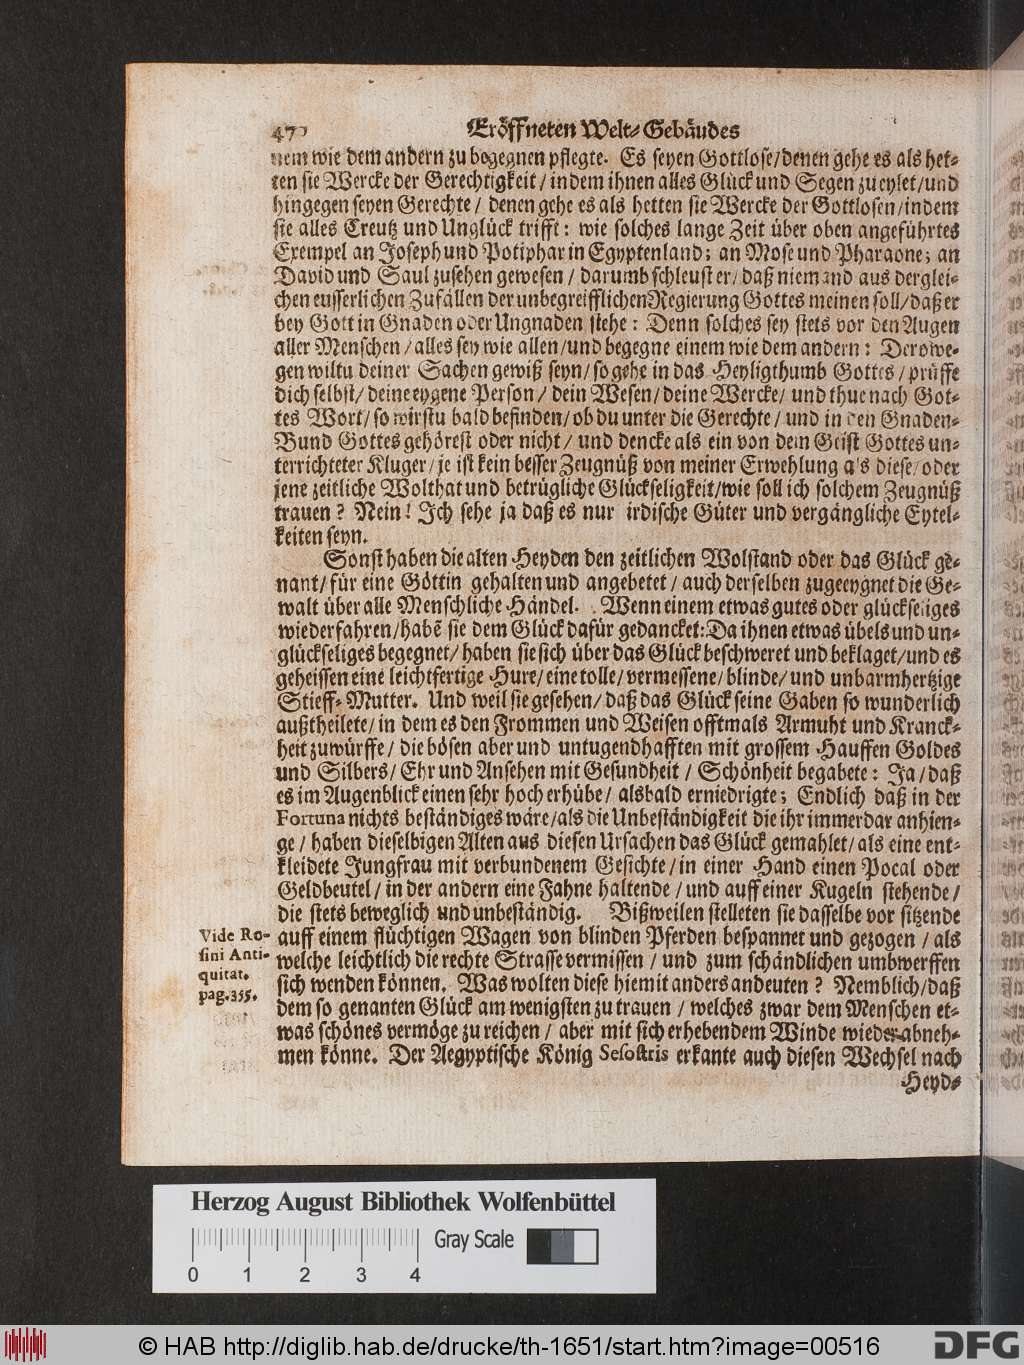 Eröffneten Welt-Gebäudes
nem wie dem andern zu begegnen pflegte. Es seyen Gottlose/denen gehe es als het-
ten sie Wercke der Gerechtigkeit/ indem ihnen alles Glück und Segen zu eylet/und
hingegen seyen Gerechte/ denen gehe es als hetten sie Wercke der Gottlosen/indem
sie alles Creutz und Unglück trifft: wie solches lange Zeit über oben angeführtes
Exempel an Joseph und Potiphar in Egyptenland; an Mose und Pharaone; an
David und Saul zusehen gewesen/ darumb schleust er/ daß niemand aus derglei-
chen eusserlichen Zufällen der unbegreifflichen Regierung Gottes meinen soll/daß er
bey Gott in Gnaden oder Ungnaden stehe: Denn solches sey stets vor den Augen
aller Menschen/alles sey wie allen/und begegne einem wie dem andern: Derowe-
gen wiltu deiner Sachen gewiß seyn/ so gehe in das Heyligthumb Gottes/ prüffe
dich selbst/ deine eygene Person/ dein Wesen/ deine Wercke/ und thue nach Got-
tes Wort/ so wirstu bald befinden/ ob du unter die Gerechte/ und in den Gnaden-
Bund Gottes gehörest oder nicht/ und dencke als ein von dem Geist Gottes un-
terrichteter Kluger/ je ist kein besser Zeugnüß von meiner Erwehlung als diese/ oder
jene zeitliche Wolthat und betrügliche Glückseligkeit/wie soll ich solchem Zeugnüß
trauen? Nein! Ich sehe ja daß es nur irdische Güter und vergängliche Eytel-
keiten seyn.
Sonst haben die alten Heyden den zeitlichen Wolstand oder das Glück ge-
nant/ für eine Göttin gehalten und angebetet/ auch derselben zugeeygnet die Ge-
walt über alle Menschliche Händel. Wenn einem etwas gutes oder glückseliges
wiederfahren/habẽ sie dem Glück dafür gedancket: Da ihnen etwas übels und un-
glückseliges begegnet/ haben sie sich über das Glück beschweret und beklaget/und es
geheissen eine leichtfertige Hure/ eine tolle/ vermessene/ blinde/ und unbarmhertzige
Stieff-Mutter. Und weil sie gesehen/ daß das Glück seine Gaben so wunderlich
außtheilete/ in dem es den Frommen und Weisen offtmals Armuht und Kranck-
heit zuwürffe/ die bösen aber und untugendhafften mit grossem Hauffen Goldes
und Silbers/ Ehr und Ansehen mit Gesundheit/ Schönheit begabete: Ja/ daß
es im Augenblick einen sehr hoch erhübe/ alsbald erniedrigte; Endlich daß in der
Fortuna nichts beständiges wäre/als die Unbeständigkeit die ihr immerdar anhien-
ge/ haben dieselbigen Alten aus diesen Ursachen das Glück gemahlet/ als eine ent-
kleidete Jungfrau mit verbundenem Gesichte/ in einer Hand einen Pocal oder
Geldbeutel/ in der andern eine Fahne haltende/ und auff einer Kugeln stehende/
die stets beweglich und unbeständig. Bißweilen stelleten sie dasselbe vor sitzende
auff einem flüchtigen Wagen von blinden Pferden bespannet und gezogen/ als
welche leichtlich die rechte Strasse vermissen/ und zum schändlichen umbwerffen
sich wenden können. Was wolten diese hiemit anders andeuten? Nemblich/daß
dem so genanten Glück am wenigsten zu trauen/ welches zwar dem Menschen et-
was schönes vermöge zu reichen/ aber mit sich erhebendem Winde wieder abneh-
men könne. Der Aegyptische König Sesostris erkante auch diesen Wechsel nach
Heyd-
Vide Ro-
sini Anti-
quitat.
pag.355.
Herzog August Bibliothek Wolfenbüttel
Gray Scale
0 1 2 3 4
© HAB http://diglib.hab.de/drucke/th-1651/start.htm?image=00516
DFG